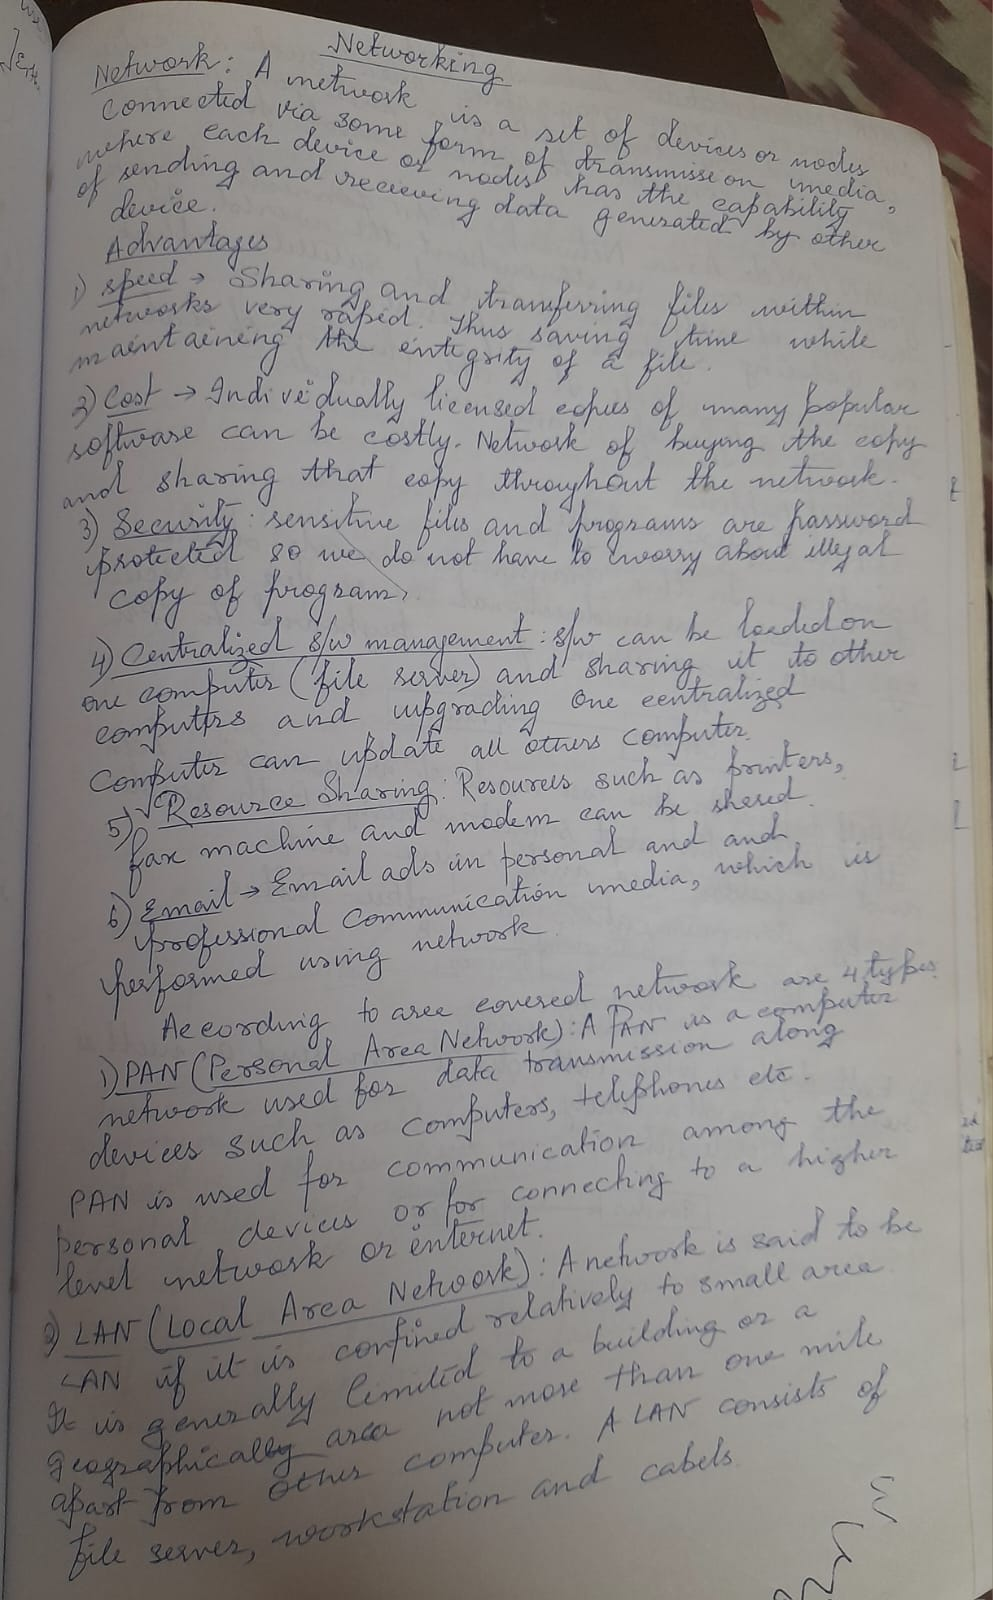 Networking
Network: A network is a set of devices or nodes
connected via some form of transmission media,
where each device or nodes has the capability
of sending and receiving data generated by other
device.
Advantages
1) speed → Sharing and transferring files within
networks very rapid. Thus saving time while
maintaining the integrity of a file.
2) Cost → Individually licensed copies of many popular
software can be costly. Network of buying the copy
and sharing that copy throughout the network.
3) Security: sensitive files and programs are password
protected so we do not have to worry about illegal
copy of program.
4) Centralized s/w management: s/w can be loaded on
one computer (file server) and sharing it to other
computers and upgrading one centralized
computer can update all others computer.
5) Resource Sharing: Resources such as printers,
fax machine and modem can be shared.
6) Email → Email ads in personal and and
professional communication media, which is
performed using network.
According to area covered network are 4 types.
1) PAN (Personal Area Network): A PAN is a computer
network used for data transmission along
devices such as computers, telephones etc.
PAN is used for communication among the
personal devices or for connecting to a higher
level network or internet.
2) LAN (Local Area Network): A network is said to be
LAN if it is confined relatively to small area
It is generally limited to a building or a
geographically area not more than one mile
apart from other computer. A LAN consists of
file server, workstation and cabels